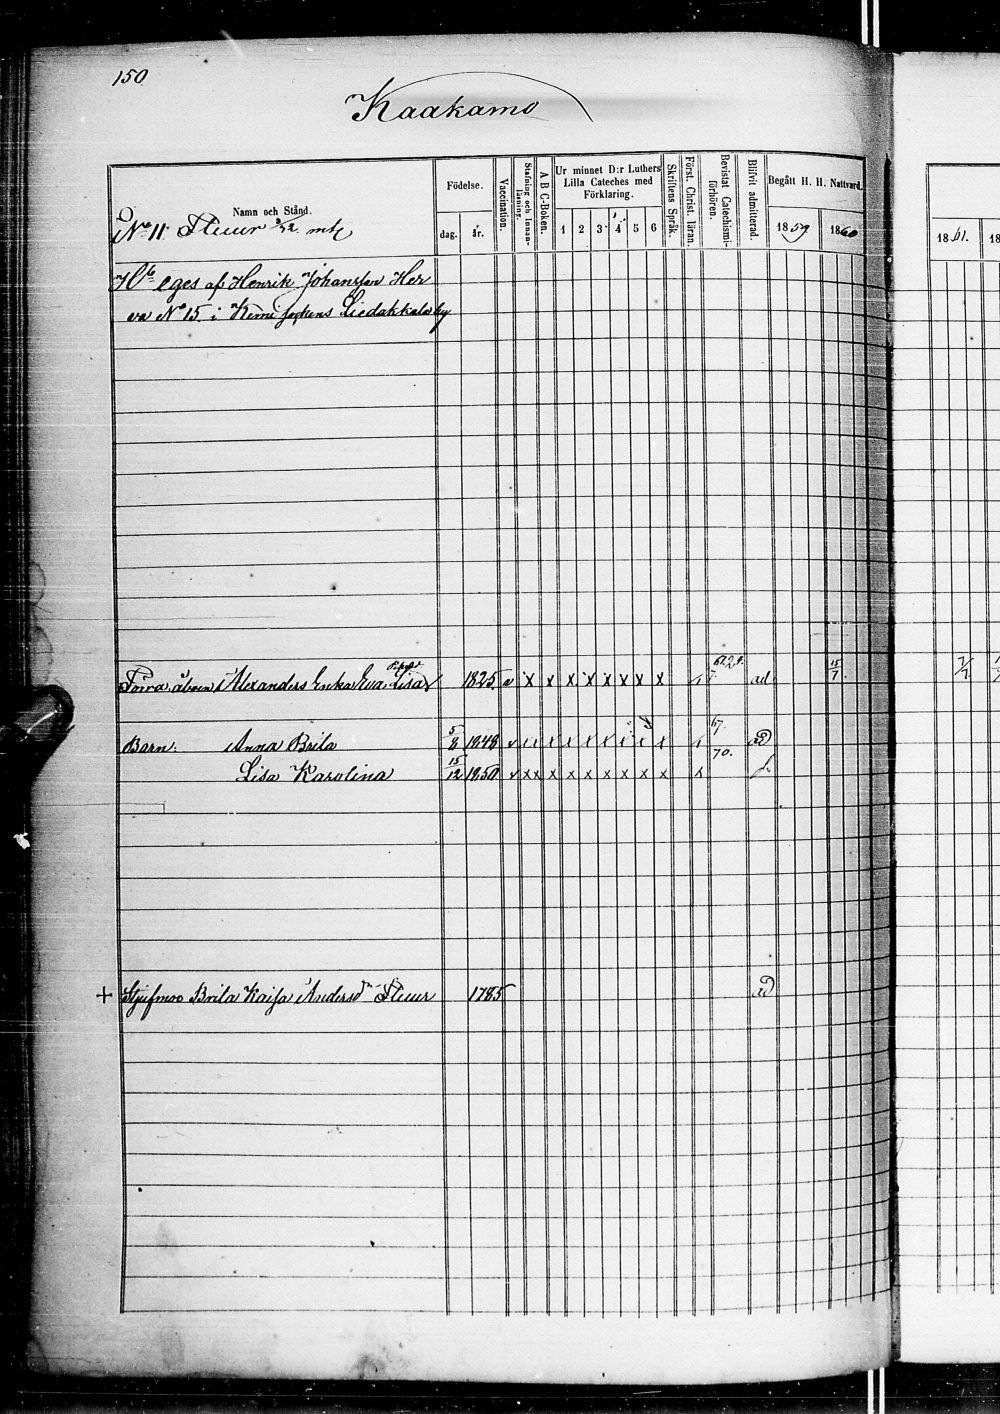 150
Kaakamo
Namn och Stånd.
Födelse.
dag.
år.
Vaccination.
Stafning och Innanläsning.
A B C-Boken.
Ur minnet D:r Luthers
Lilla Cateches med
Förklaring.
1 2 3 4 5 6
Skriftens Språk.
Först. Christ. läran.
Bevistat Catechismi-
förhören.
Blifvit admitterad.
Begått H. H. Nattvard.
1859 1860
1861. 18
No 11 Fluur mtl
eges af Henrik Johansson Her
va No 15 i Kemi sockens Liedakkala by
Alexanders Enka Eva Lisa 1825 v x x x x x x x x ad 15/7 7/7
Barn: Anna Brita 5/8 1848 67. ad
Lisa Karolina 15/12 1850 v x x x x x x x x x 70.
+ Styfmor Brita Kaisa Andersdr Fluur 1785 ad